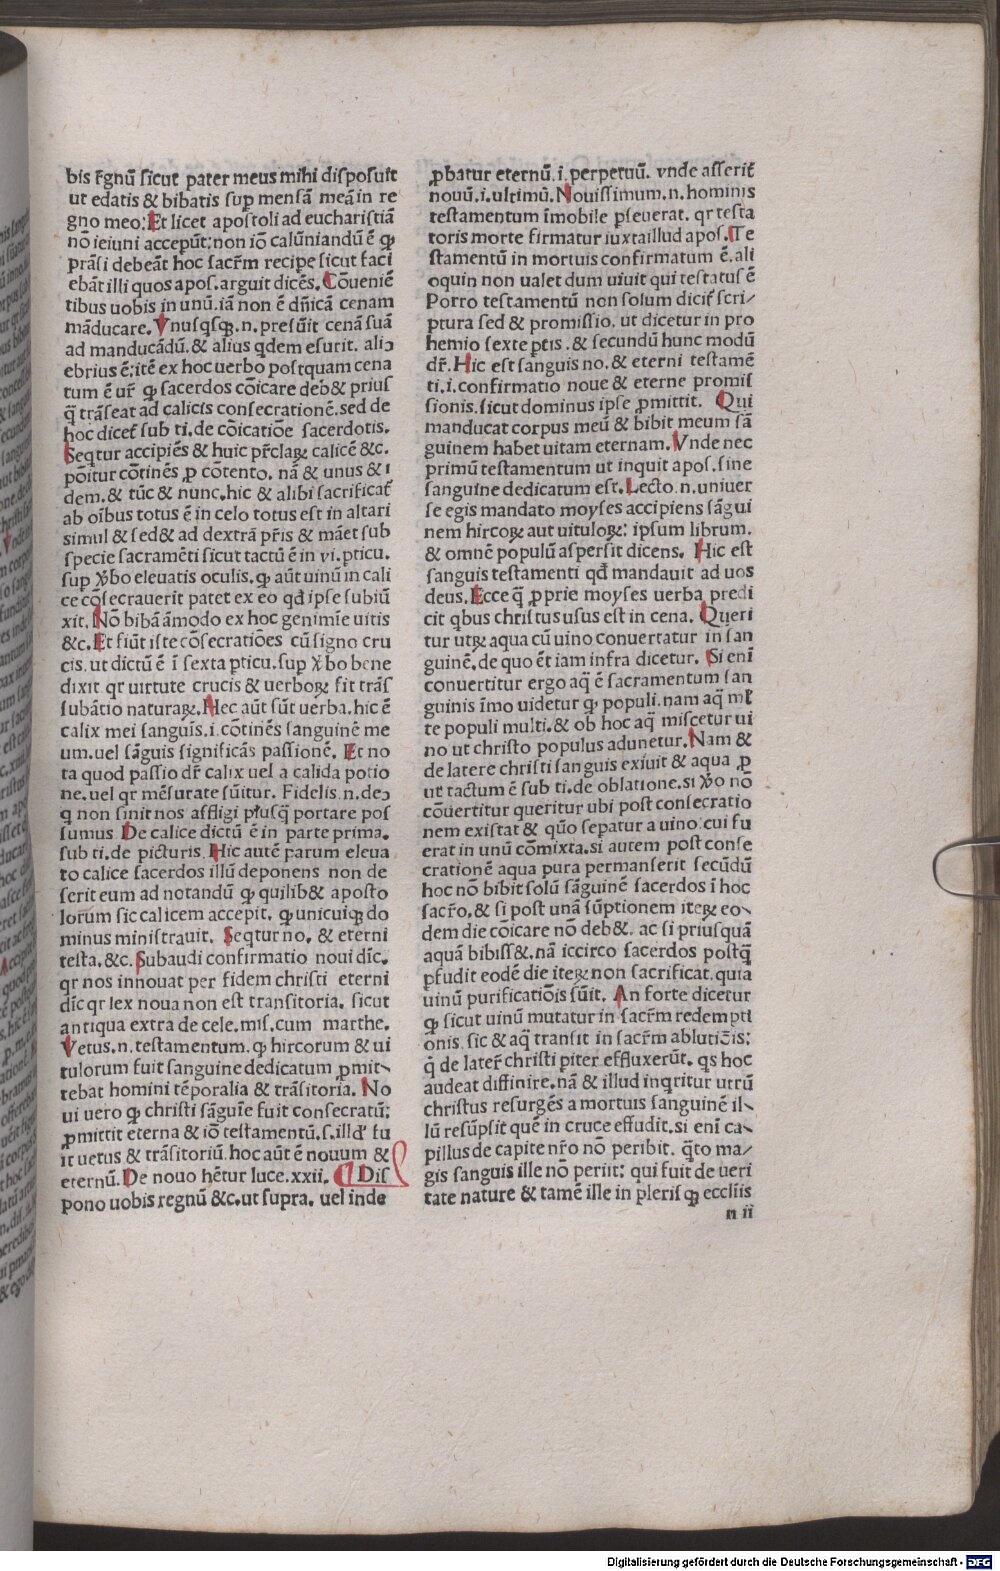 bis r̄gnū ſicut pater meus mihi diſpoſuit
ut edatis & bibatis ſup menſā meā in re
gno meo: Et licet apoſtoli ad euchariſtiā
nō ieiuni accepūt: non iō calūniandū ē ꝙ
prāſi debeāt hoc ſacr̄m recipe ſicut faci
ebāt illi quos apoſ. arguit dicēs. Cōueniē
tibus uobis in unū. iā non ē dn̄icā cenam
māducare. Vnuſqſqꝫ .n. preſūit cenā ſuā
ad manducādū. & alius qdem eſurit. aliꝰ
ebrius ē: itē ex hoc uerbo poſtquam cena
tum ē ur̄ ꝙ ſacerdos cōicare deb& prius
q̄ trāſeat ad calicis conſecrationē. ſed de
hoc dicet̄ ſub ti. de cōicatiōe ſacerdotis.
Seqtur accipiēs & huic pr̄claꝝ calicē &c.
pōitur cōtinēs ꝓ cōtento. nā & unus & i
dem. & tūc & nunc. hic & alibi ſacrificat̄
ab oībus totus ē in celo totus eſt in altari
simul & ſed& ad dextrā pr̄is & māet ſub
ſpecie ſacramēti ſicut tactū ē in vi. pticu.
ſup ꝟbo eleuatis oculis. ꝙ aūt uinū in cali
ce cōſecrauerit patet ex eo qd̄ ipſe ſubiū
xit. Nō bibā āmodo ex hoc genimīe uitis
&c. Et fiūt iſte cōſecratiōes cū ſigno cru
cis. ut dictū ē ī ſexta pticu. ſup ꝟbo bene
dixit qr uirtute crucis & uerboꝝ fit trāſ
ſubātio naturaꝝ. Hec aūt ſūt uerba. hic ē
calix mei ſanguīs .i. cōtinēs ſanguinē me
um. uel ſāguis ſignificās paſſionē. Et no
ta quod paſſio dr̄ calix uel a calida potio
ne. uel qr mēſurate ſūitur. Fidelis .n. deꝰ
q non ſinit nos affligi pluſq̄ portare poſ
ſumus. De calice dictū ē in parte prima.
ſub ti. de picturis. Hic autē parum eleua
to calice ſacerdos illū deponens non de
ſerit eum ad notandū ꝙ quilib& apoſto
lorum ſic calicem accepit. ꝙ unicuiqꝫ do
minus miniſtrauit. Seqtur no. & eterni
teſta. &c. Subaudi confirmatio noui dīc.
qr nos innouat per fidem chriſti eterni
dīc qr lex noua non eſt tranſitoria. ſicut
antiqua extra de cele. miſ. cum marthe.
Vetus .n. teſtamentum. ꝙ hircorum & ui
tulorum fuit ſanguine dedicatum ꝓmit⸗
tebat homini tēporalia & trāſitoria. No
ui uero ꝙ chriſti ſāguīe fuit conſecratū:
ꝓmittit eterna & iō teſtamentū. ſ. illd' fu
it uetus & trāſitoriū. hoc aūt ē nouum &
eternū. De nouo hētur luce. xxii. ¶ Diſ
pono uobis regnū &c. ut ſupra. uel inde
ꝓbatur eternū .i. perpetuū. vnde aſſerit̄
nouū .i. ultimū. Nouiſſimum .n. hominis
teſtamentum īmobile pſeuerat. qr teſta
toris morte firmatur iuxta illud apoſ. Te
ſtamentū in mortuis confirmatum ē. ali
oquin non ualet dum uiuit qui teſtatus ē
Porro teſtamentū non ſolum dicit̄ ſcri⸗
ptura ſed & promiſſio. ut dicetur in pro
hemio ſexte ptis. & ſecundū hunc modū
dr̄. Hic eſt ſanguis no. & eterni teſtamē
ti .i. confirmatio noue & eterne promiſ
ſionis. ſicut dominus ipſe ꝓmittit. Qui
manducat corpus meū & bibit meum ſā
guinem habet uitam eternam. Vnde nec
primū teſtamentum ut inquit apoſ. ſine
ſanguine dedicatum eſt. Lecto .n. uniuer
ſe egis mandato moyſes accipiens ſāgui
nem hircoꝝ aut uituloꝝ: ipſum librum.
& omnē populū aſperſit dicens. Hic eſt
ſanguis teſtamenti qd̄ mandauit ad uos
deus. Ecce q̄ ꝓprie moyſes uerba predi
cit qbus chriſtus uſus eſt in cena. Queri
tur utꝝ aqua cū uino conuertatur in ſan
guinē. de quo ēt iam infra dicetur. Si enī
conuertitur ergo aq̄ ē ſacramentum ſan
guinis īmo uidetur ꝙ populi. nam aq̄ ml̄
te populi multi. & ob hoc aq̄ miſcetur ui
no ut chriſto populus adunetur. Nam &
de latere chriſti ſanguis exiuit & aqua ꝓ
ut tactum ē ſub ti. de oblatione. ſi ꝟo nō
cōuertitur queritur ubi poſt conſecratio
nem exiſtat & qūo ſepatur a uino: cui fu
erat in unū cōmixta. ſi autem poſt conſe
crationē aqua pura permanſerit ſecūdū
hoc nō bibit ſolū ſāguinē ſacerdos ī hoc
ſacr̄o. & ſi poſt unā ſūptionem iteꝝ eo⸗
dem die cōicare nō deb&. ac ſi priuſquā
aquā bibiſſ&. nā iccirco ſacerdos poſtq̄
pfudit eodē die iteꝝ non ſacrificat. quia
uinū purificatiōis ſūit. An forte dicetur
ꝙ ſicut uinū mutatur in ſacr̄m redempti
onis. ſic & aq̄ tranſit in ſacr̄m ablutiōis:
q̄ de later̄ chriſti piter effluxerūt. qs hoc
audeat diffinire. nā & illud inqritur utrū
chriſtus reſurgēs a mortuis ſanguinē il⸗
lū reſūpſit quē in cruce effudit. ſi enī ca⸗
pillus de capite nr̄o nō peribit. q̄to ma⸗
gis ſanguis ille nō periit: qui fuit de ueri
tate nature & tamē ille in pleriſqꝫ eccliis
n ii
Digitalisierung gefördert durch die Deutsche Forschungsgemeinschaft - DFG